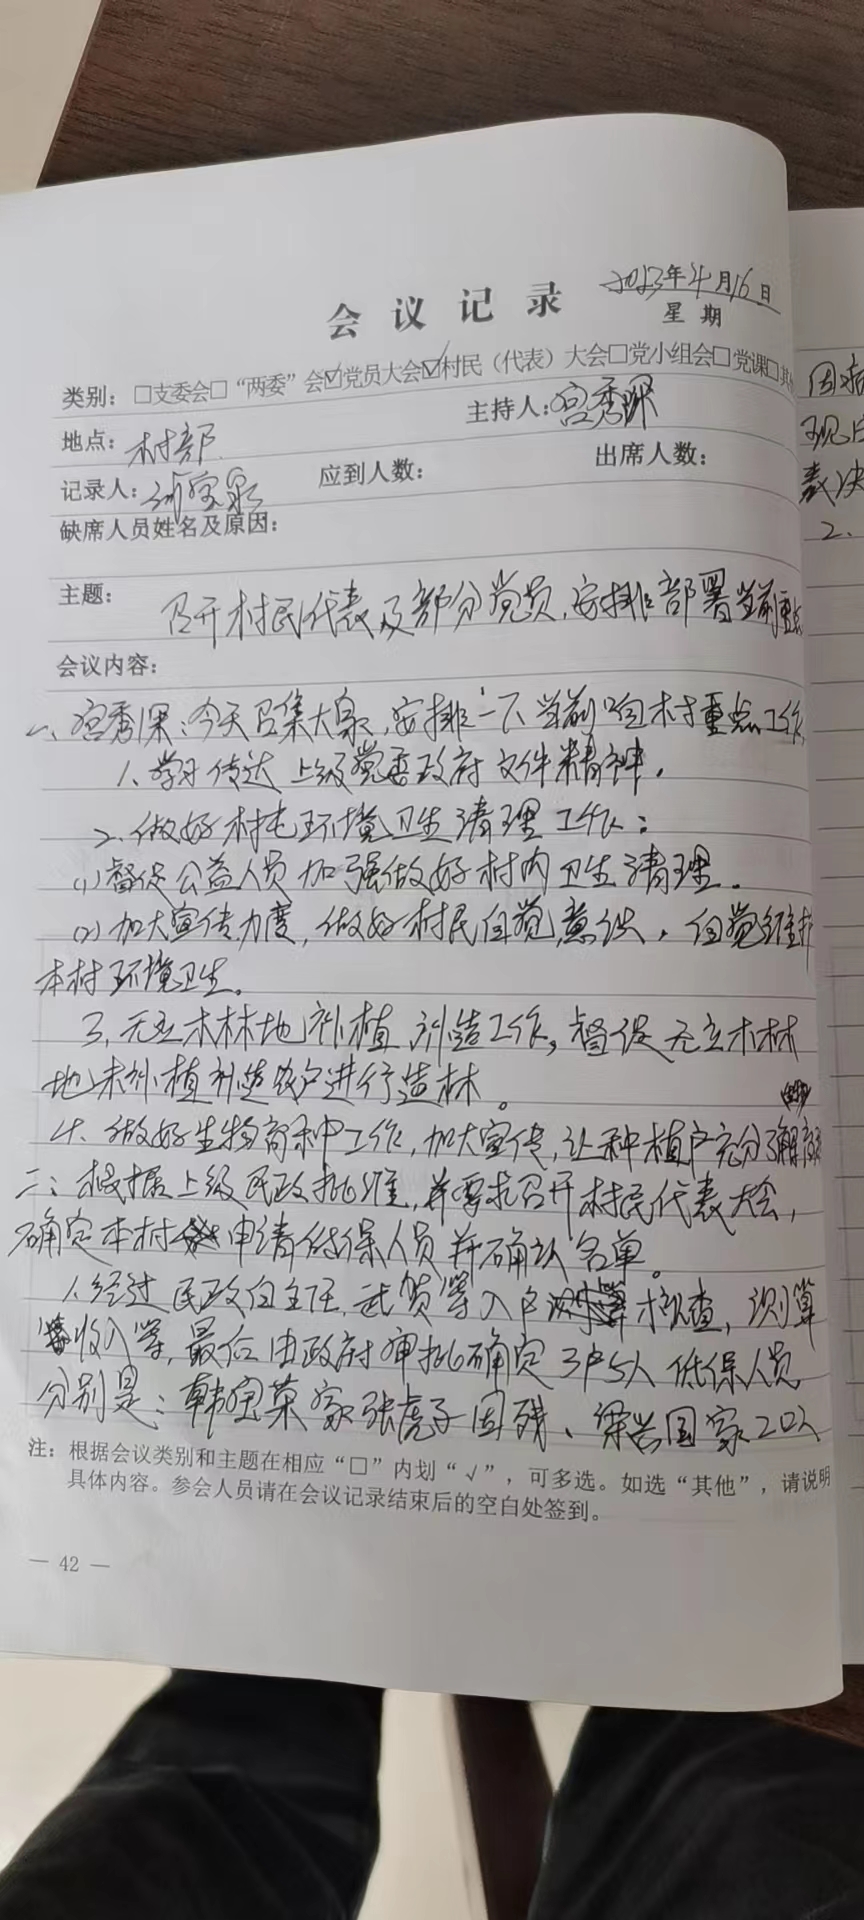 会议记录
2023年4月16日
星期
类别：□支委会□“两委”会☑党员大会☑村民（代表）大会□党小组会□党课□其
地点：村部
主持人：宫秀
记录人：
应到人数：
出席人数：
缺席人员姓名及原因：
主题：召开村民代表及部分党员，安排部署当前重点
会议内容：
一、宫秀：今天召集大家，安排一下当前咱村重点工作
1、学习传达上级党委政府文件精神。
2、做好村屯环境卫生清理工作：
(1)督促公益人员加强做好村内卫生清理。
(2)加大宣传力度，做好村民自觉意识，自觉维护
本村环境卫生。
3、无立木林地补植补造工作，督促无立木林
地未补植补造农户进行造林。
4、做好生物育种工作，加大宣传，让种植户充分了解
二：根据上级民政批准，并要求召开村民代表大会，
确定本村申请低保人员并确认名单。
1、经过民政白主任，武贺等入户核查，测算
收入等，最后由政府审批确定3户5人低保人员
分别是：韩宝家张虎子因残、梁国家2口人
注：根据会议类别和主题在相应“□”内划“√”，可多选。如选“其他”，请说明
具体内容。参会人员请在会议记录结束后的空白处签到。
— 42 —
因
现
表决
2.